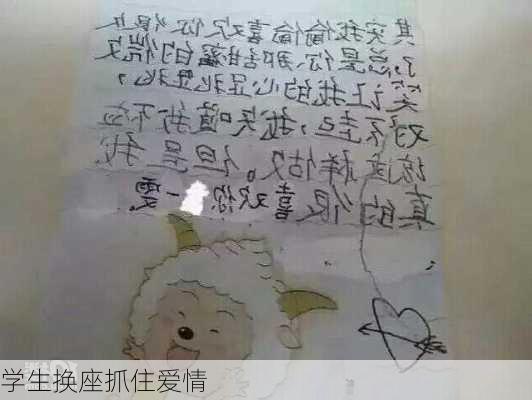 其实我偷偷喜欢你很久
了,总是你、那甜蜜的
让我的心
对不起,我知道我不应
该这样做。但是我
真的很喜欢你 一雯
学生换座抓住爱情